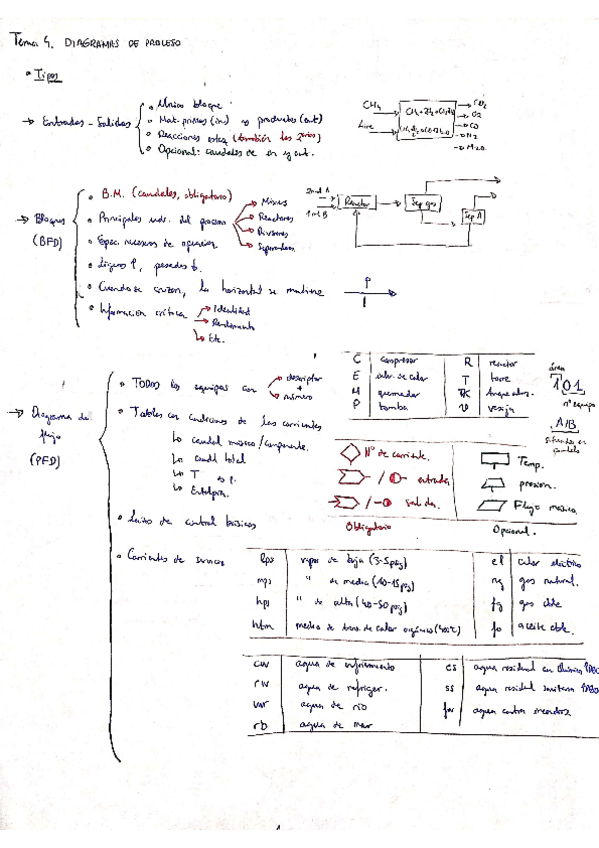 Tema 4. DIAGRAMAS DE PROCESO
• Tipos
→ Entradas - Salidas
• Único bloque
• Mat. primas (in) y productos (out)
• Reacciones esteq (también las
• Opcional: caudales de en y out.
CH4
Aire
CO2
O2
CO
N2
H2O
→ Bloques
(BFD)
• B.M. (caudales, obligatorio)
• Principales del proceso
→ Mixers
→ Reactores
→ Divisores
→ Separadores
• Espec. necesarias de operación
• Ligeros ↑, pesados ↓.
• Cuando se cruzan, la horizontal se mantiene
• Información crítica
→ Identidad
→ Rendimiento
→ Etc.
2 mol A
1 mol B
Reactor
Sep gas
Sep A
→ Diagrama de
flujo
(PFD)
• TODOS los equipos con
→ descriptor
+
→ número
• Tablas con condiciones de las corrientes
↳ caudal másico/componente.
↳ caudal total
↳ T y P.
↳ Entalpía.
• Lazos de control básicos
• Corrientes de servicio
C compresor R reactor
E inter. de calor T torre
H quemador TK tanque alm.
P bomba V vasija
área
101
nº equipo
A/B
situados en
paralelo
Nº de corriente.
/ entrada
/ salida.
Obligatorio
Temp.
presión.
Flujo másico.
Opcional.
lps vapor de baja (3-5 bar) el calor eléctrico
mps " de media (10-15 bar) ng gas natural.
hps " de alta (40-50 bar) fg gas cble
htm medio de trans. de calor orgánico (400ºC) fo aceite cble.
cw agua de enfriamiento cs agua residual con químicos
rw agua de refriger. ss agua residual sanitaria
agua de río fw agua contra incendios
rb agua de mar